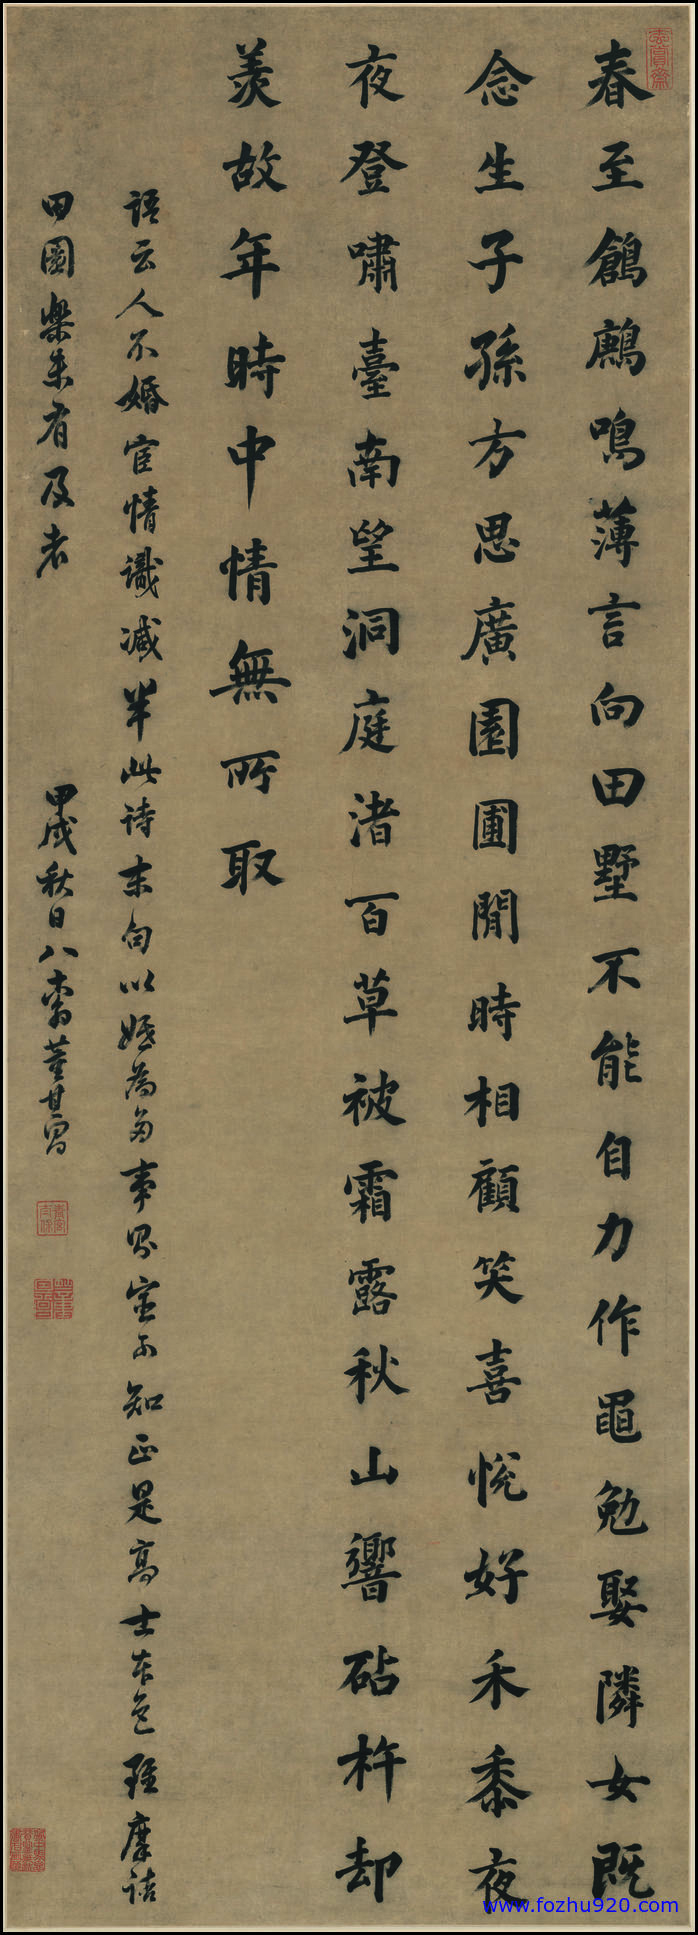 春至鶬鶊鳴薄言向田墅不能自力作黽勉娶隣女既
念生子孫方思廣園圃閒時相顧笑喜悅好禾黍夜
夜登嘯臺南望洞庭渚百草被霜露秋山響砧杵却
羨故年時中情無所取
語云人不婚宦情識减半此诗末句以婚為多事异室不知正是高士本色 摩詰
田園樂未有及者
甲戌秋日八十翁董其昌
www.fozhu920.com